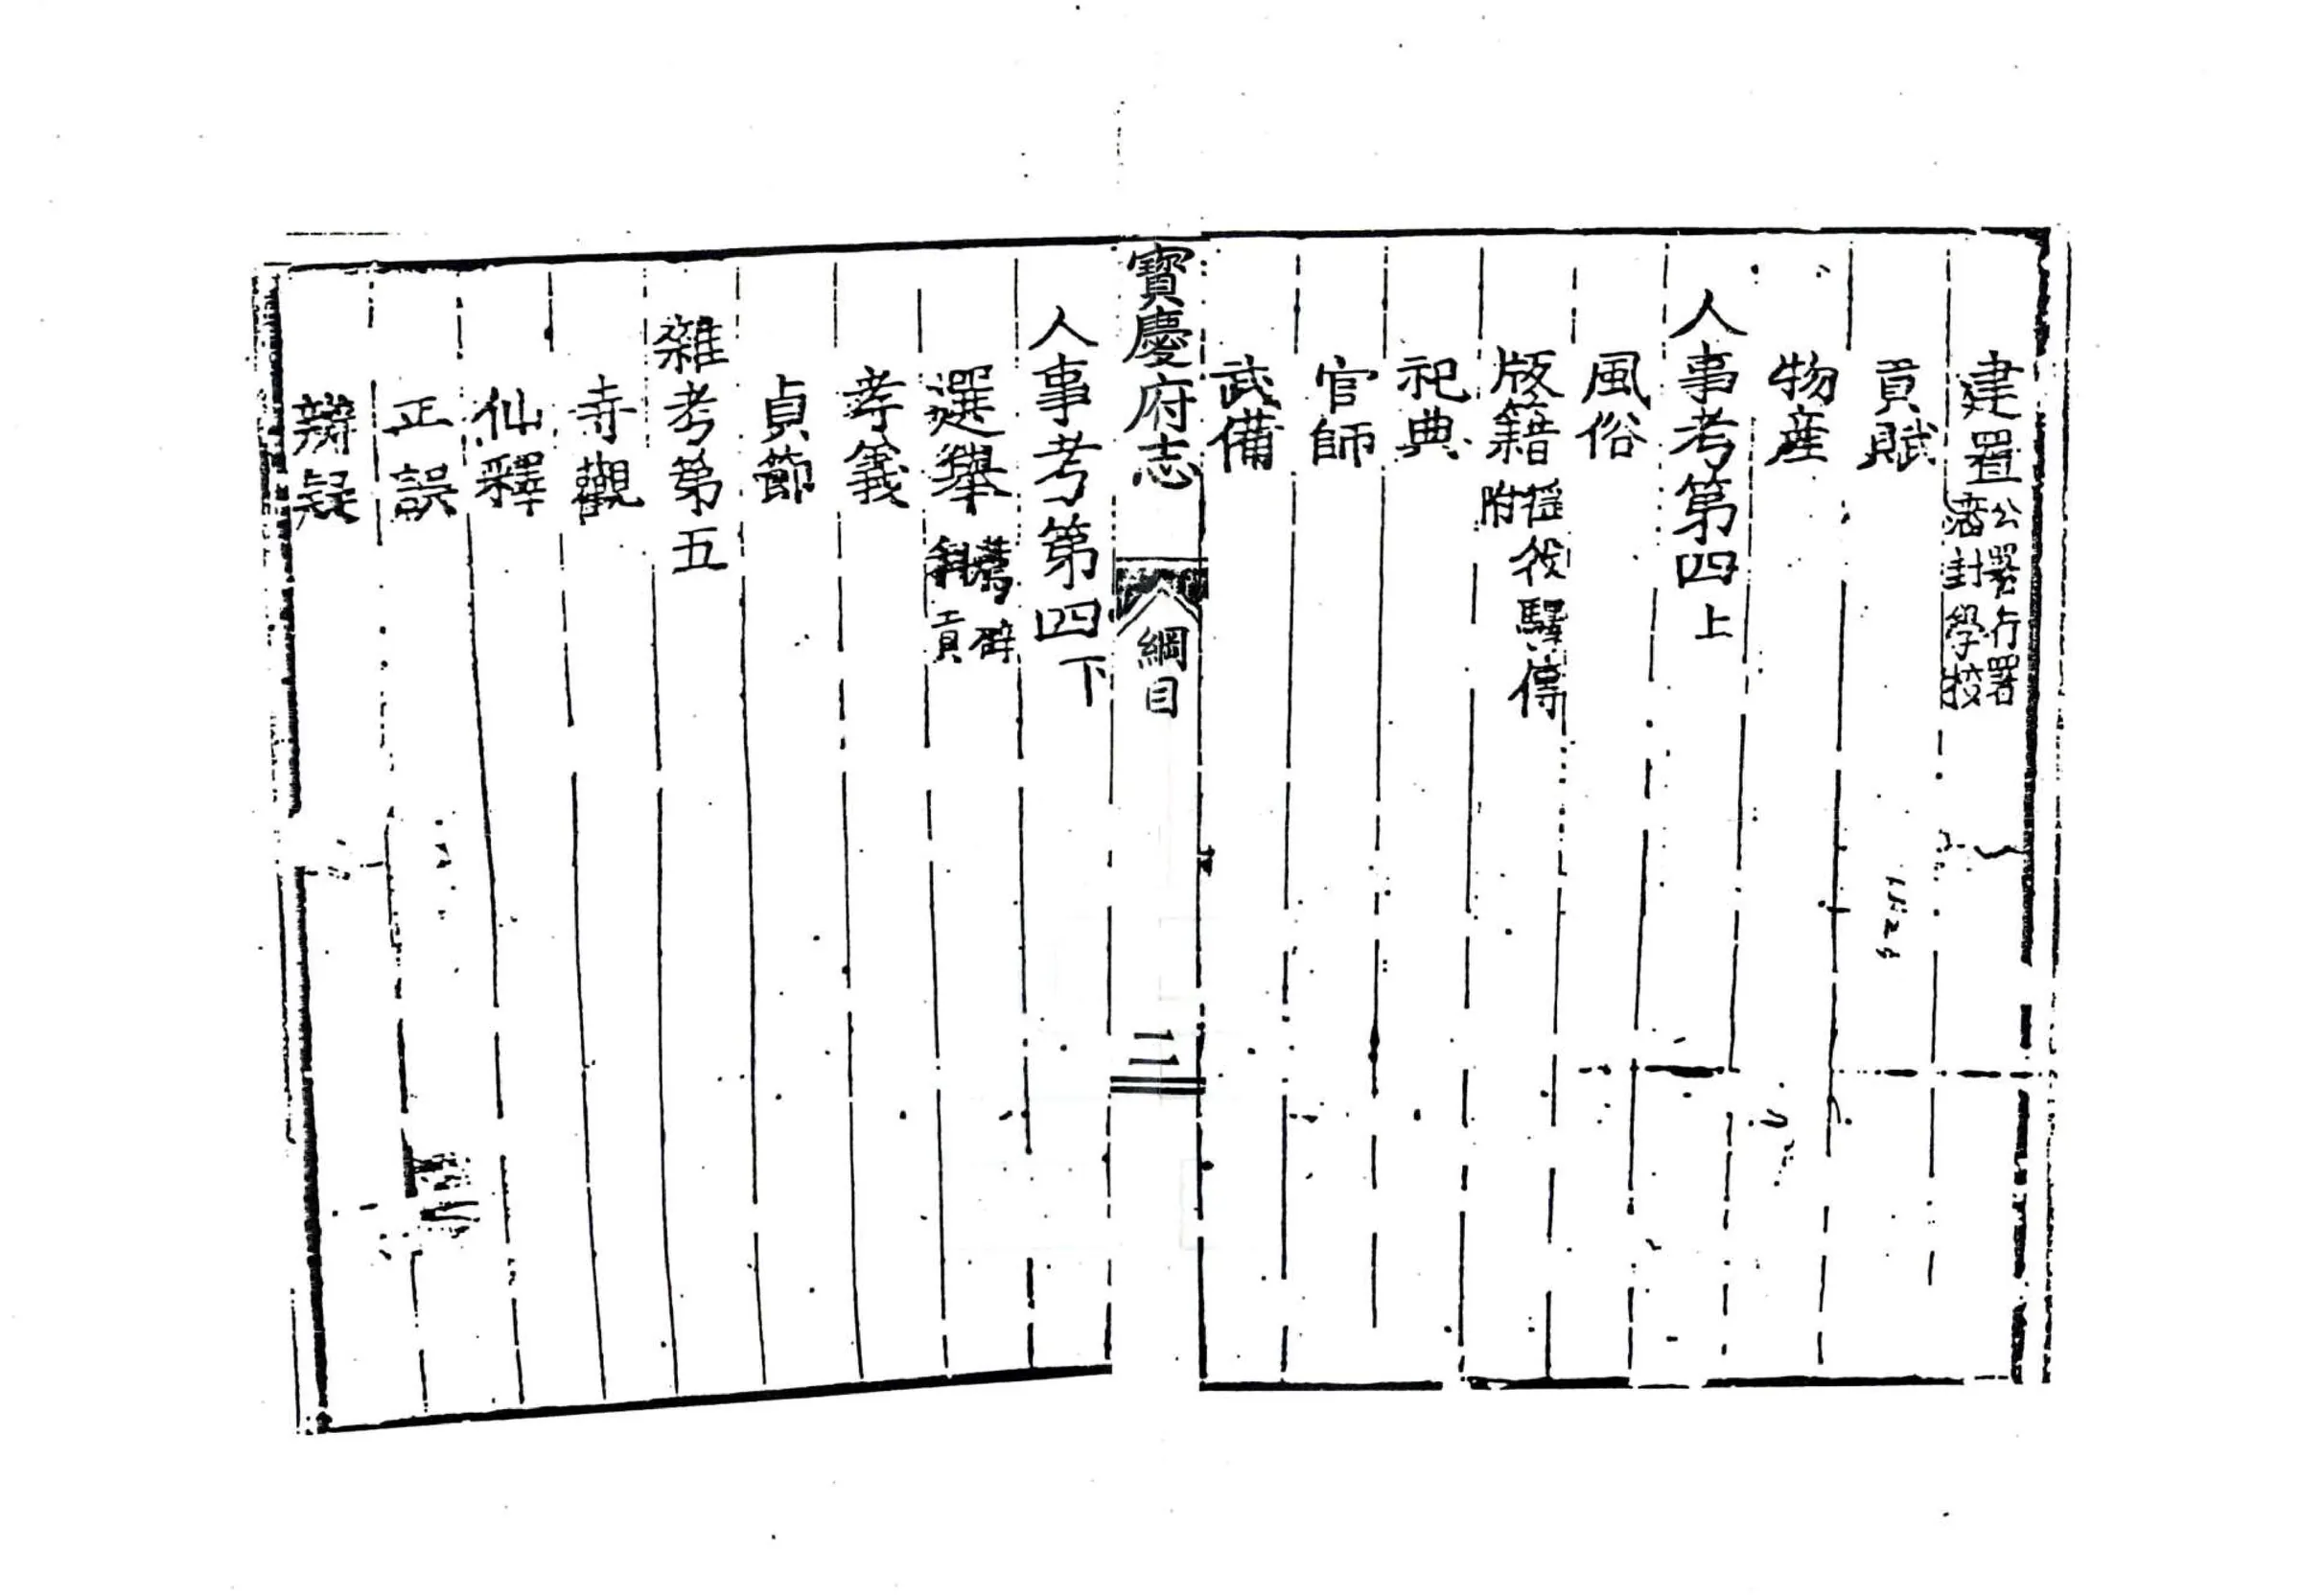 建置 公署行署 藩封學校
貢賦
物産
人事考第四上
風俗
版籍 徭役驛傳附
祀典
官師
武備
寶慶府志 綱目 二
人事考第四下
選舉 薦辟 科貢
孝義
貞節
雜考第五
寺觀
仙釋
正誤
辨疑